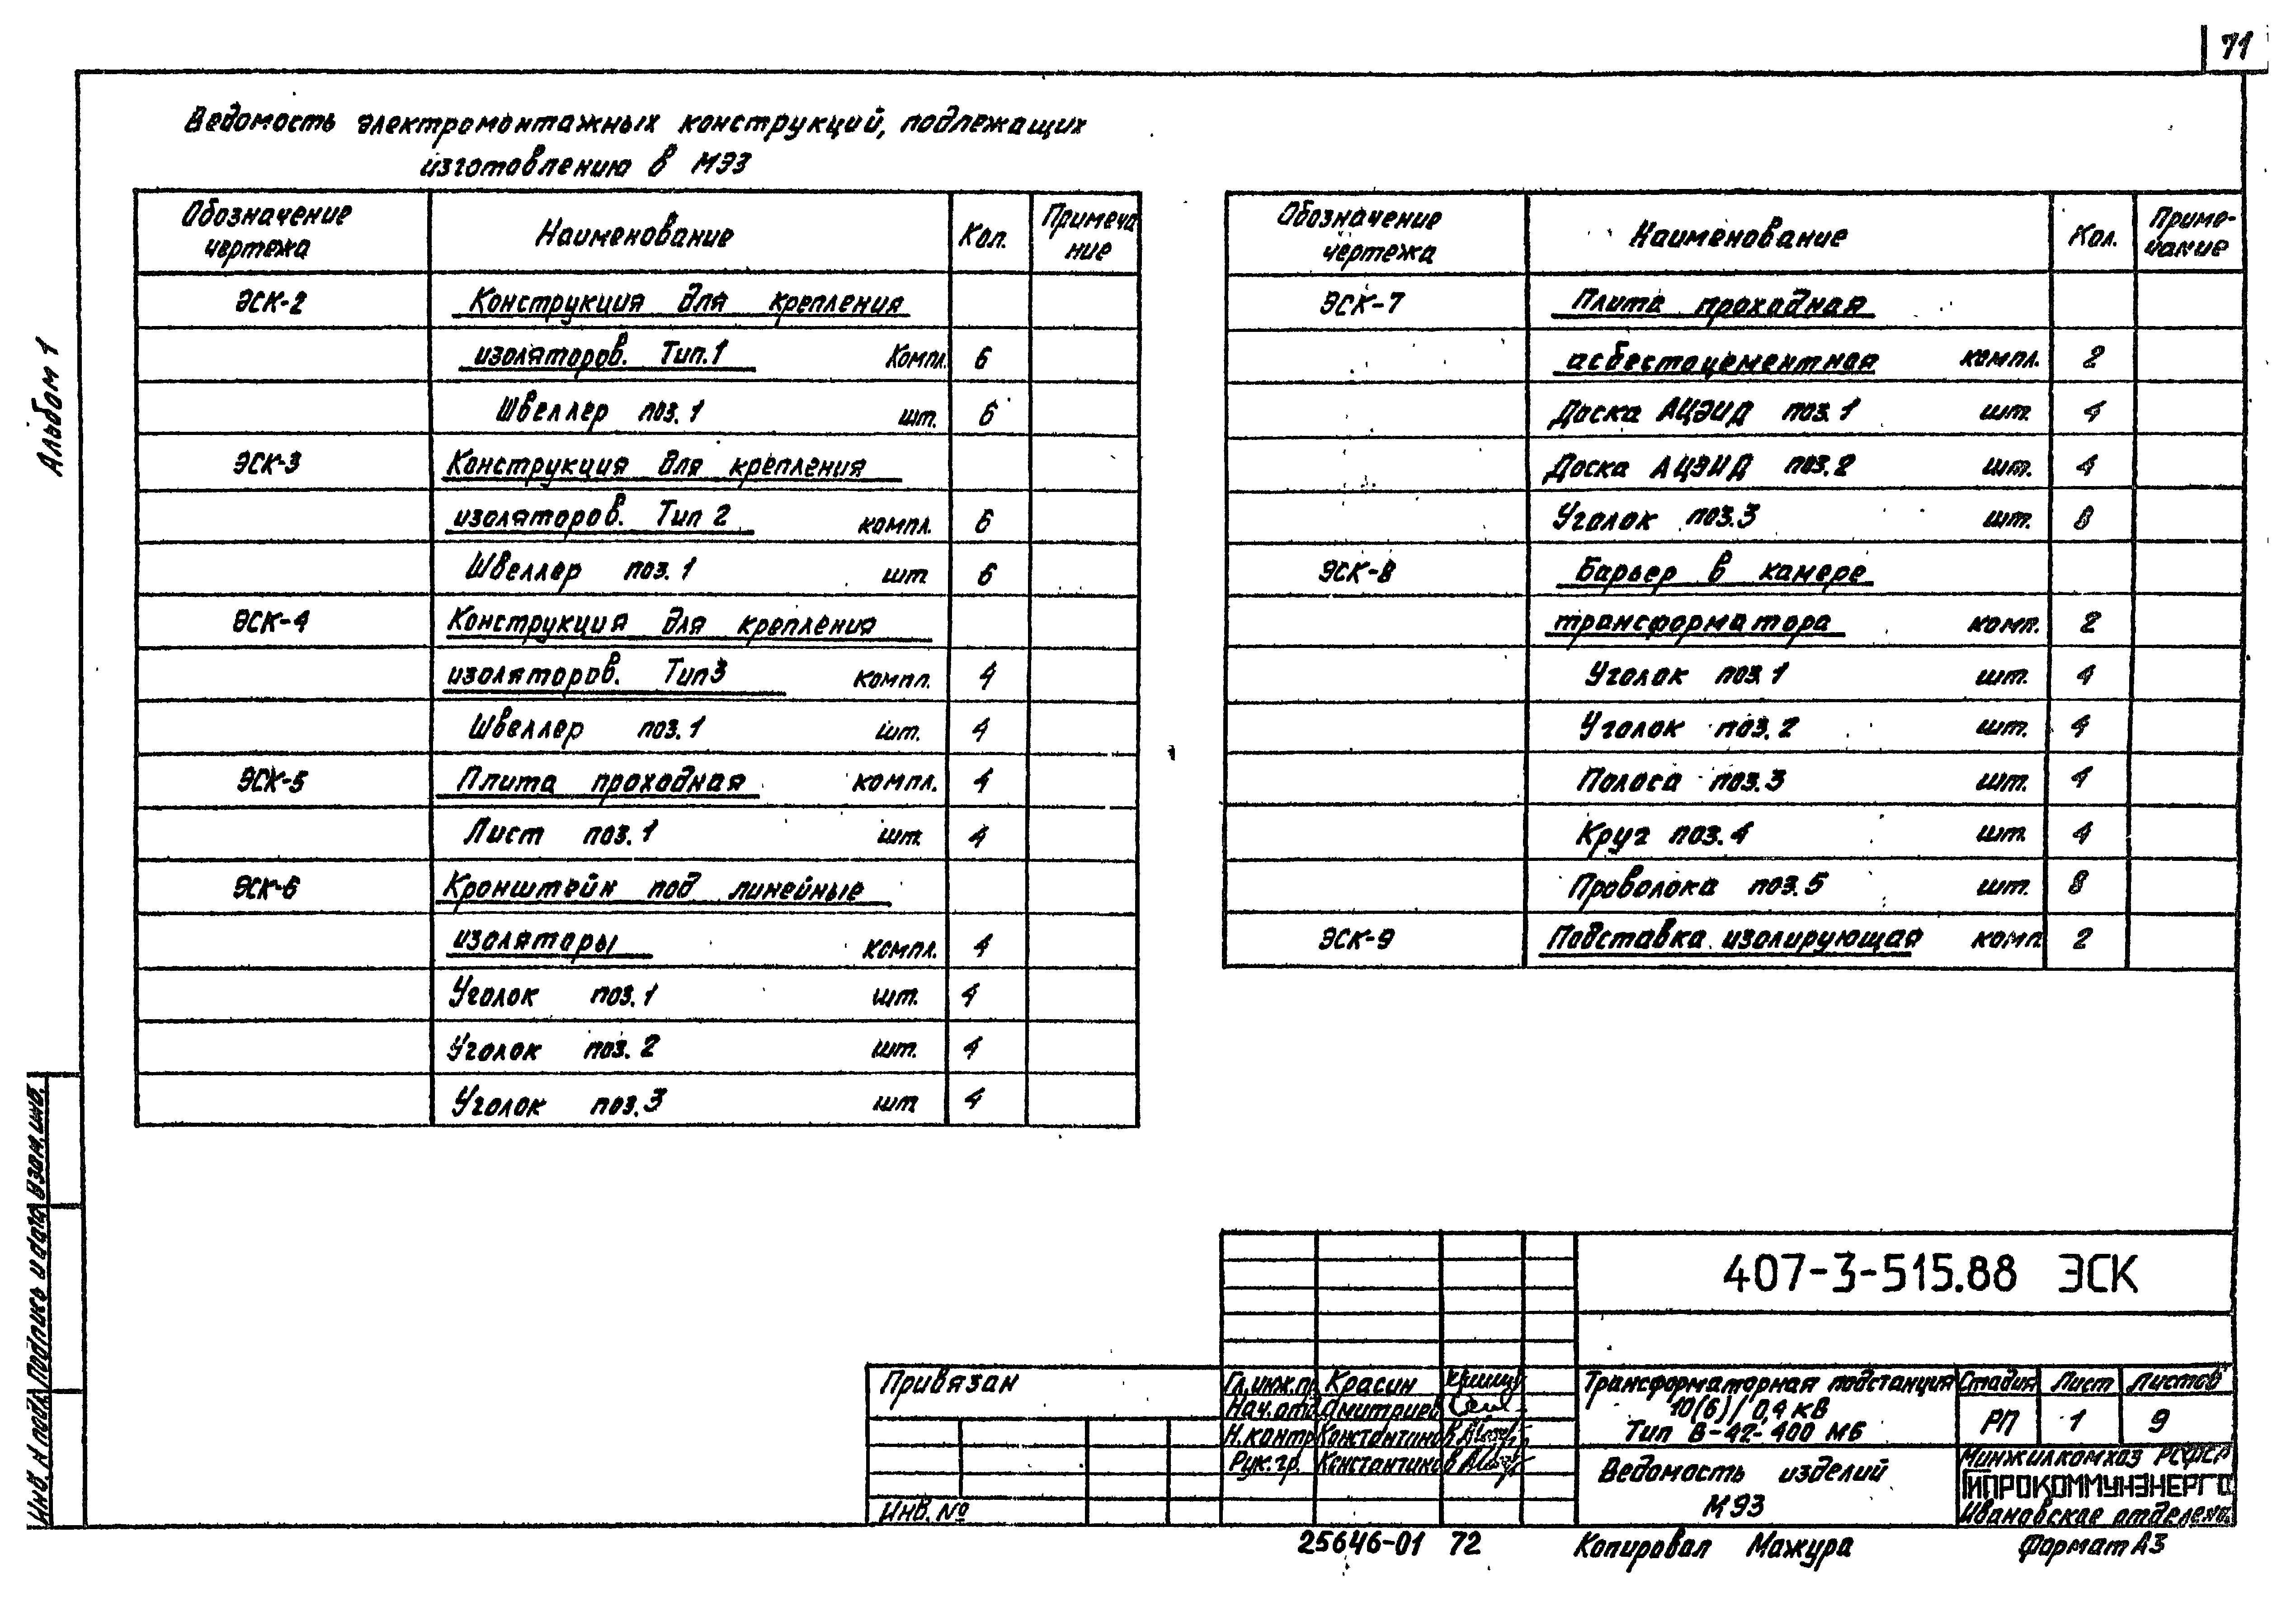 71
Альбом 1
Ведомость электромонтажных конструкций, подлежащих
изготовлению в МЭЗ
Обозначение чертежа Наименование Кол. Примеча ние
ЭСК-2 Конструкция для крепления
изоляторов. Тип.1 Компл. 6
Швеллер поз.1 шт. 6
ЭСК-3 Конструкция для крепления
изоляторов. Тип 2 компл. 6
Швеллер поз.1 шт 6
ЭСК-4 Конструкция для крепления
изоляторов. Тип3 компл. 4
Швеллер поз.1 шт. 4
ЭСК-5 Плита проходная компл. 4
Лист поз.1 шт. 4
ЭСК-6 Кронштейн под линейные
изоляторы компл. 4
Уголок поз.1 шт. 4
Уголок поз.2 шт. 4
Уголок поз.3 шт 4
Обозначение чертежа Наименование Кол. Приме- чание
ЭСК-7 Плита проходная
асбестоцементная компл. 2
Доска АЦЭИД поз.1 шт. 4
Доска АЦЭИД поз.2 шт. 4
Уголок поз.3 шт. 8
ЭСК-8 Барьер в камере
трансформатора комп. 2
Уголок поз.1 шт. 4
Уголок поз.2 шт. 4
Полоса поз.3 шт. 4
Круг поз.4 шт. 4
Проволока поз.5 шт. 8
ЭСК-9 Подставка изолирующая комп 2
Инв. N подл. Подпись и дата Взам. инв.
Привязан
Инв. №
407-3-515.88 ЭСК
Гл.инж.пр. Красин
Нач.отд. Дмитриев
Н.контр Константинов
Рук.гр. Константинов
Трансформаторная подстанция
10(6)/0,4 кВ
Тип В-42-400 М6
Стадия Лист Листов
РП 1 9
Ведомость изделий
МЭЗ
Минжилкомхоз РСФСР
ГИПРОКОММУНЭНЕРГО
Ивановское отделен.
25646-01 72 Копировал Мажура Формат А3